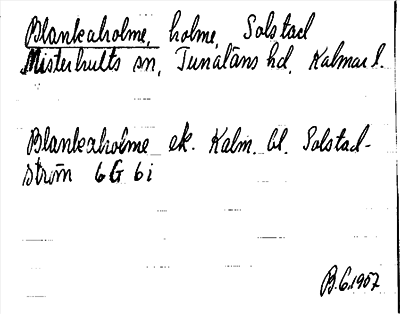 Blankaholme, holme, Solstad
Misterhults sn, Tunaläns hd, Kalmar l.
Blankaholme ek. Kalm. bl. Solstad-
ström 6G 6i
B.G. 1957